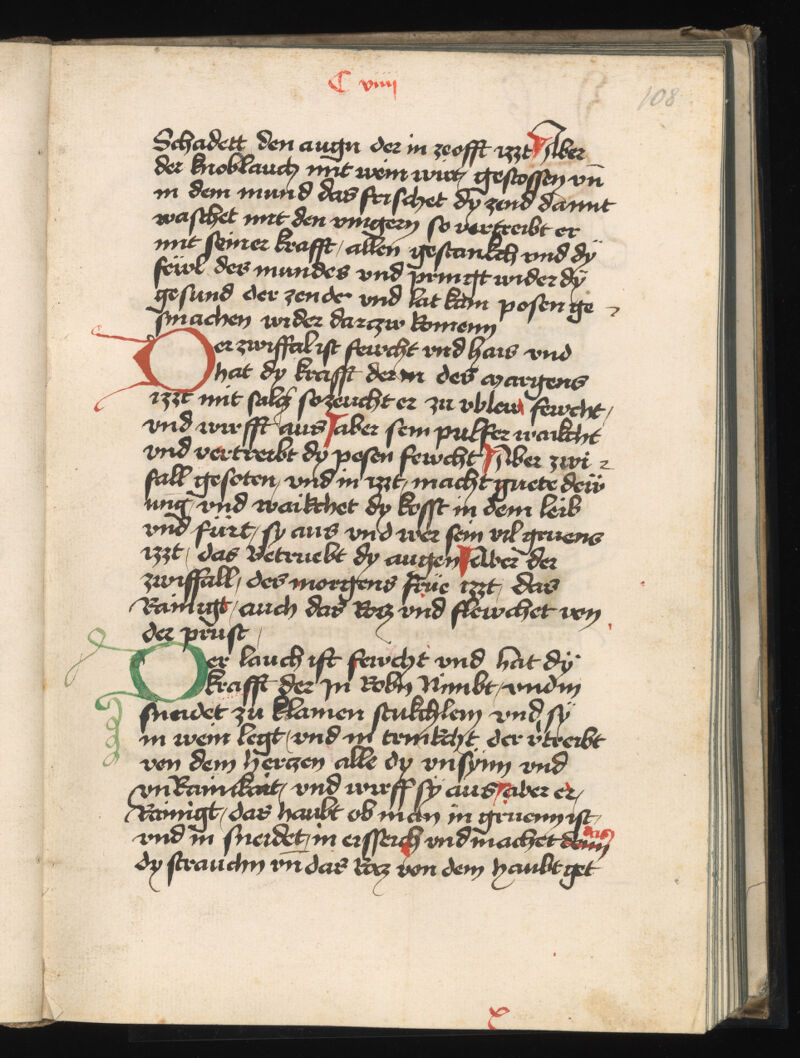 C viiij
108
Schadett den augn der in zeofft izzt Aber
der knoblauch mit wein wirt gestossen vn̄
in dem mund das frischet dy zend damit
waschet mit den vingern so vertreibt er
mit seiner krafft / allen gestankch vnd dy̆
fewl des mundes vnd pringt wider dy̆
gesund der zende vnd lat kain posen ge
smachen wider darczw komenn
Der zwiffal ist fewcht vnd hais vnd
hat dy krafft der in des margens
izzt mit salcz so zeucht er zu vblew fewcht /
vnd wirfft aus aber sein pulfer waikcht
vnd vertreibt dy posen fewcht Aber zwi
fall gesoten / vnd in izzt / macht guete dew̆
ung / vnd waikchet dy kosst in dem leib
vnd fürt / sy aus vnd wer sein vil gruens
izzt / das betruebt dy augen Aber der
zwiffall / des morgens frue izzt / das
Rainigt / auch das Rocz vnd flewchet von
der prust /
Der lauch ist fewcht vnd hat dy̆
krafft der in Robn Nimbt / vnd in
sneidet zu klainen stukchlein vnd sy̆
in wein legt / vnd in trinkcht der vtreibt
von dem herczen alle dy vnsynn vnd
vnRainikait / vnd wirff sy aus aber er /
Rainigt / das haubt ob man in gruenn ist /
vnd in sneidet / in essich vnd machet denn das
dy strauchn vn das Rocz von dem haubt get